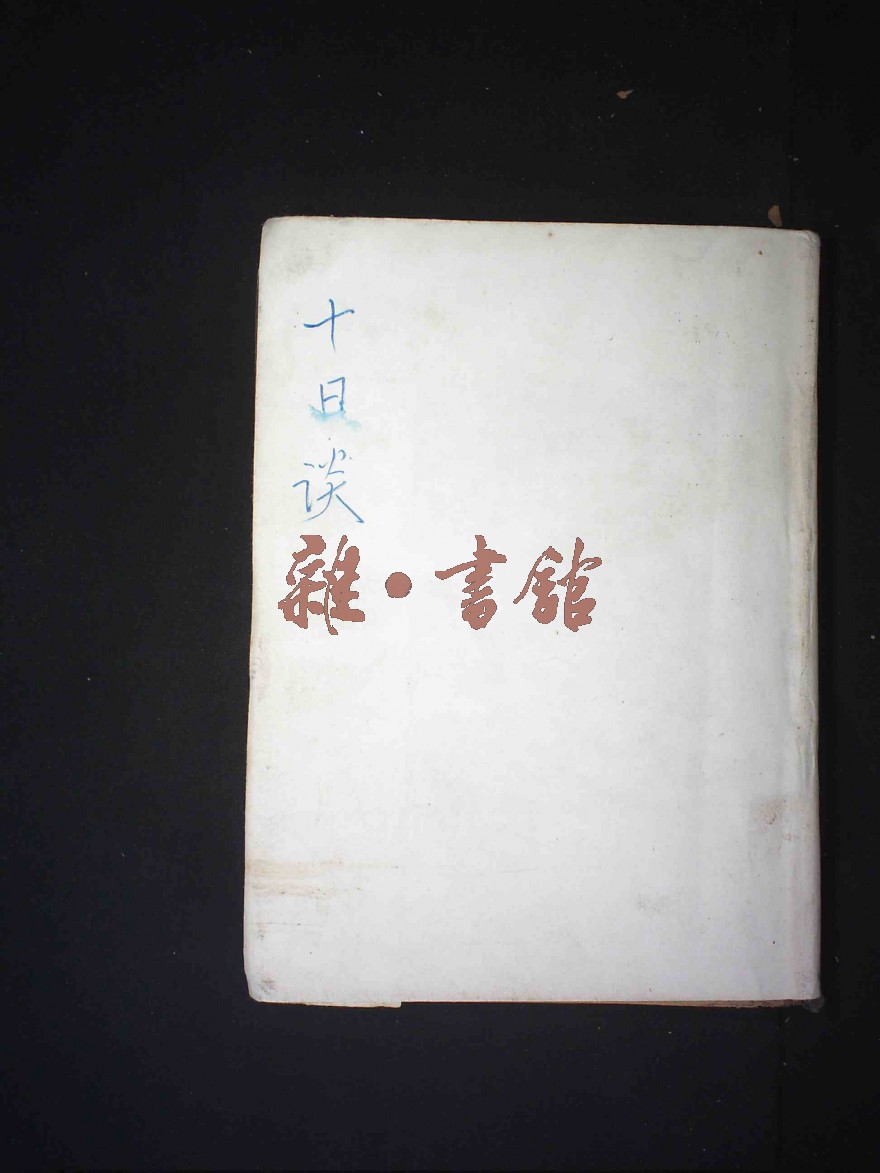 十日谈
雜·書館